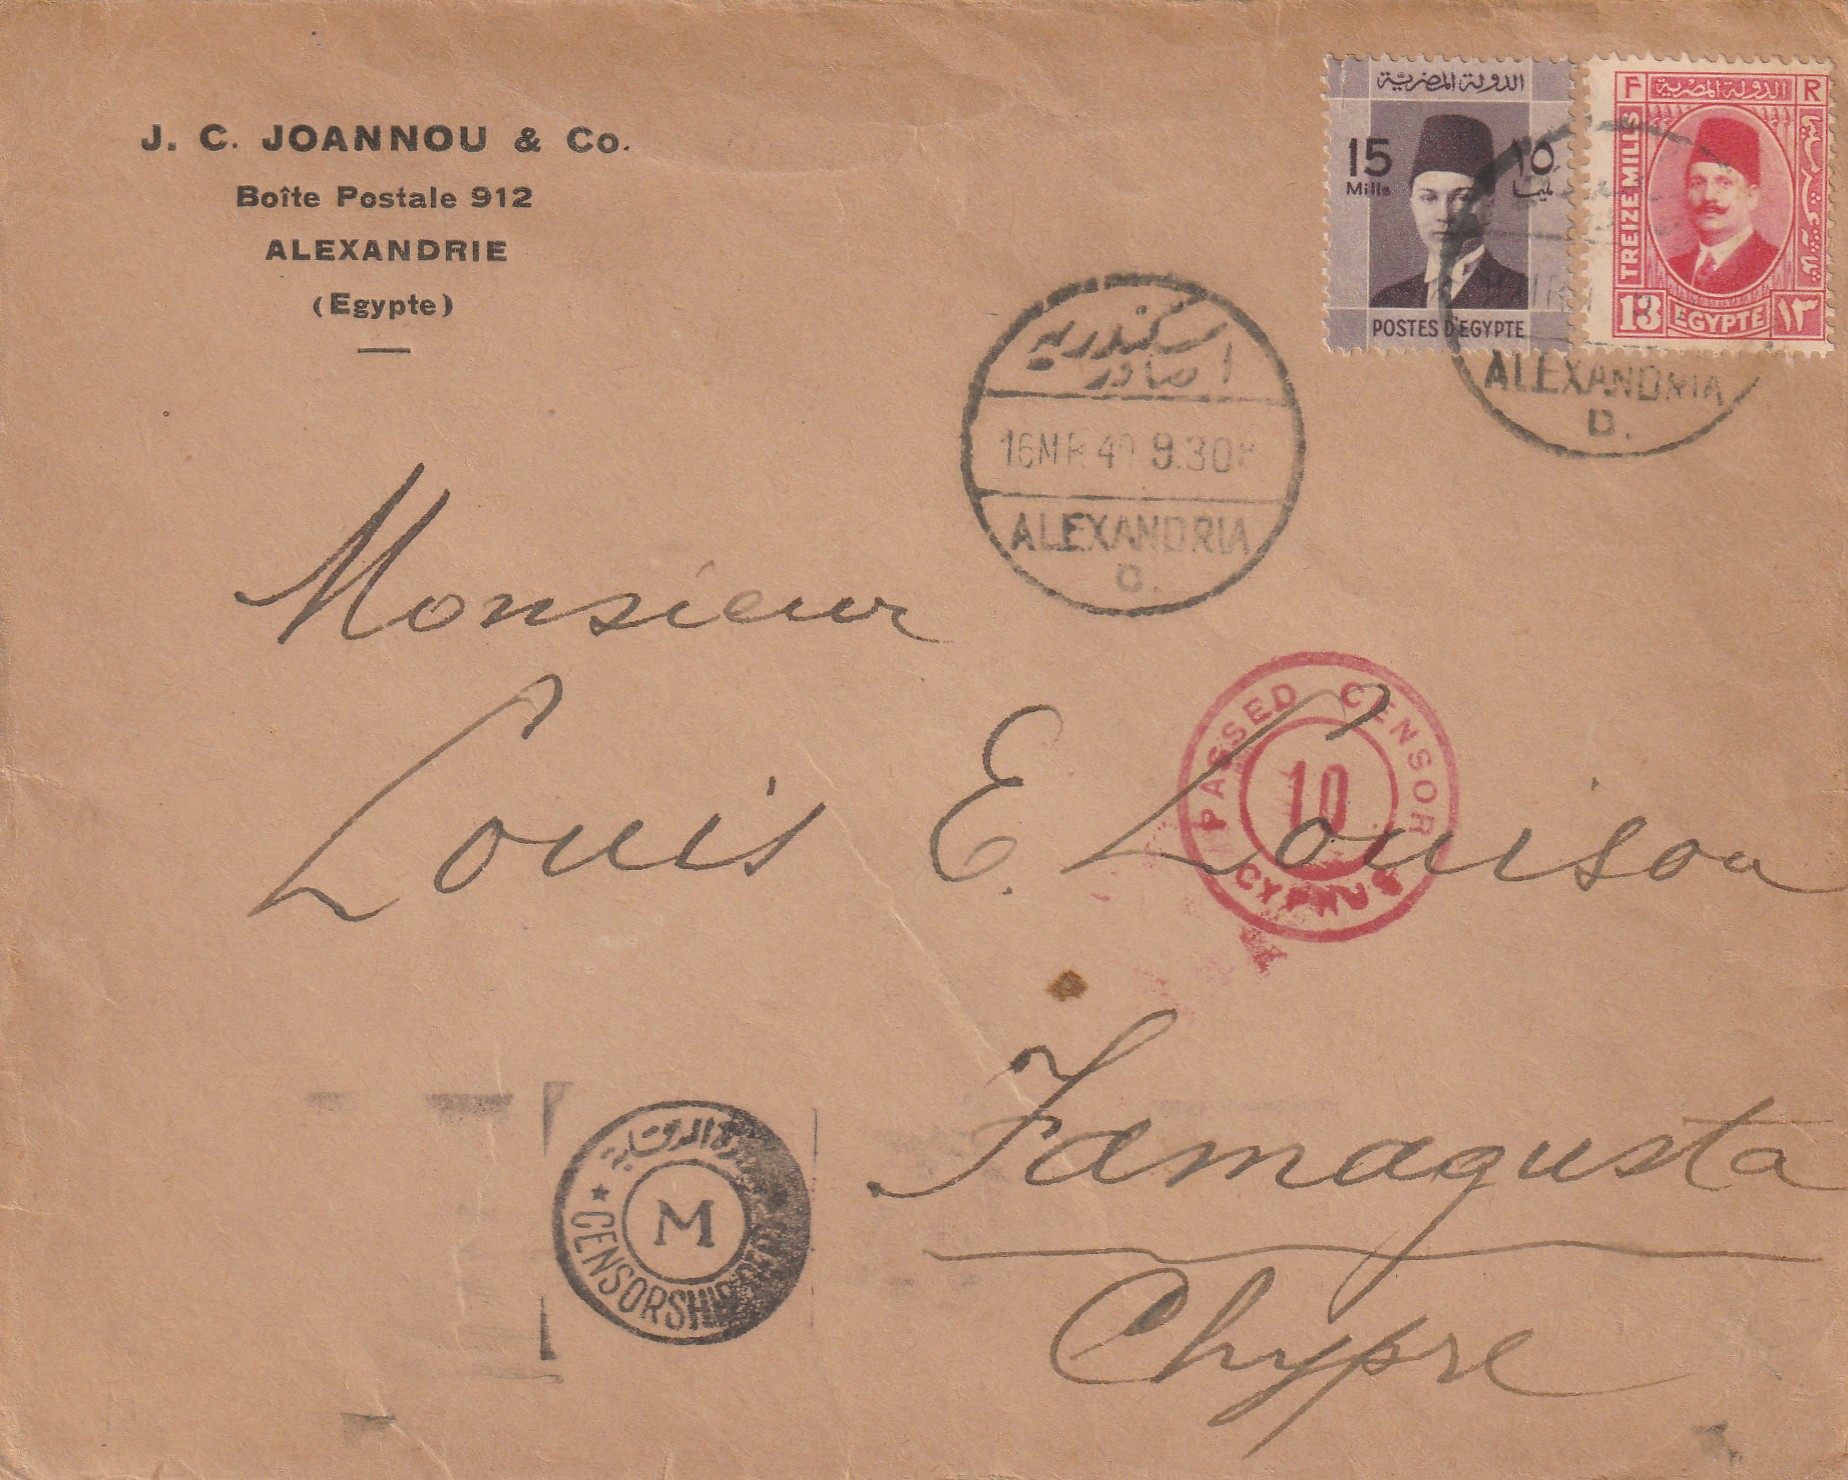 J. C. JOANNOU & Co.
Boîte Postale 912
ALEXANDRIE
(Egypte)
الدولة المصرية
15 ١٥
Mills مليم
POSTES D'EGYPTE
F الدولة المصرية R
TREIZE MILLS
13 EGYPTE ١٣
ALEXANDRIA
D.
اسكندرية
صادر
16 MR 40 9.30
ALEXANDRIA
Monsieur
Louis E. Louison
PASSED CENSOR
10
CYPRUS
Famagusta
Chypre
الرقابة
M
CENSORSHIP